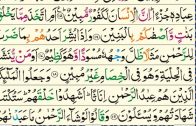 عِبَادِهٖ جُزْءًا ؕ اِنَّ الْاِنْسَانَ لَكَفُوْرٌ مُّبِيْنٌ ۞ اَمِ اتَّخَذَ مِمَّا يَخْلُقُ
بَنٰتٍ وَّاَصْفٰىكُمْ بِالْبَنِيْنَ ۞ وَاِذَا بُشِّرَ اَحَدُهُمْ بِمَا ضَرَبَ
لِلرَّحْمٰنِ مَثَلًا ظَلَّ وَجْهُهٗ مُسْوَدًّا وَّهُوَ كَظِيْمٌ ۞ اَوَمَنْ يُّنَشَّؤُا
فِي الْحِلْيَةِ وَهُوَ فِي الْخِصَامِ غَيْرُ مُبِيْنٍ ۞ وَجَعَلُوا الْمَلٰٓئِكَةَ
الَّذِيْنَ هُمْ عِبٰدُ الرَّحْمٰنِ اِنَاثًا ؕ اَشَهِدُوْا خَلْقَهُمْ ؕ سَتُكْتَبُ
شَهَادَتُهُمْ وَيُسْـَٔلُوْنَ ۞ وَقَالُوْا لَوْ شَآءَ الرَّحْمٰنُ